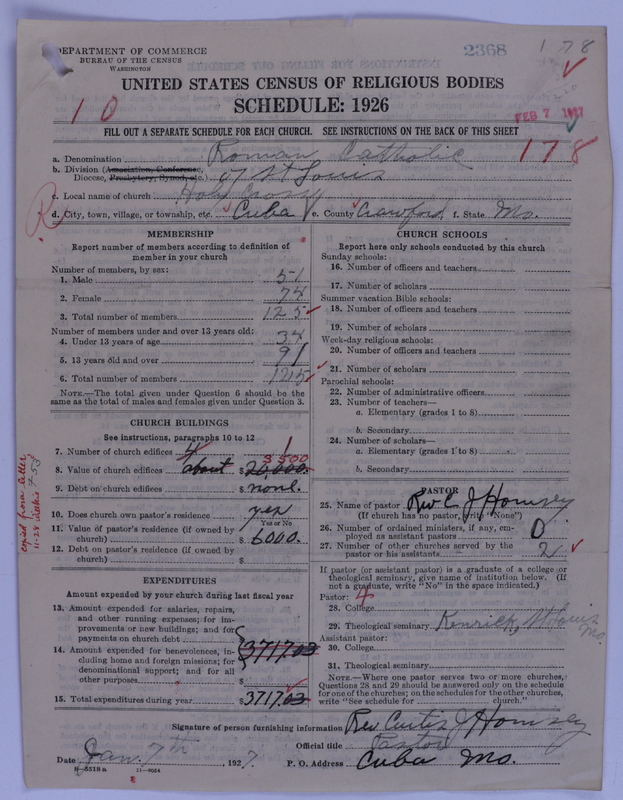 DEPARTMENT OF COMMERCE
BUREAU OF THE CENSUS
WASHINGTON
2368
178
UNITED STATES CENSUS OF RELIGIOUS BODIES
SCHEDULE: 1926
10
FEB 7 1927
FILL OUT A SEPARATE SCHEDULE FOR EACH CHURCH. SEE INSTRUCTIONS ON THE BACK OF THIS SHEET
178
a. Denomination Roman Catholic
b. Division (Association, Conference,
Diocese, Presbytery, Synod, etc.) of St Louis
c. Local name of church Holy Cross
R
d. City, town, village, or township, etc. Cuba e. County Crawford f. State Mo.
MEMBERSHIP
Report number of members according to definition of
member in your church
Number of members, by sex:
1. Male 51
2. Female 74
3. Total number of members 125
Number of members under and over 13 years old:
4. Under 13 years of age 34
5. 13 years old and over 91
6. Total number of members 125
NOTE.—The total given under Question 6 should be
same as the total of males and females given under Question 3.
CHURCH BUILDINGS
See instructions, paragraphs 10 to 12
7. Number of church edifices 4 1
3500
8. Value of church edifices about $ 20,000.
9. Debt on church edifices $ none.
10. Does church own pastor's residence yes
Yes or No
11. Value of pastor's residence (if owned by
church) $ 6000.
12. Debt on pastor's residence (if owned by
church) $
copied from letter
11-28
EXPENDITURES
Amount expended by your church during last fiscal year
13. Amount expended for salaries, repairs,
and other running expenses; for im-
provements or new buildings; and for
payments on church debt $
14. Amount expended for benevolences, in-
cluding home and foreign missions; for
denominational support; and for all
other purposes $
3717.03
15. Total expenditures during year $ 3717.03
CHURCH SCHOOLS
Report here only schools conducted by this church
Sunday schools:
16. Number of officers and teachers
17. Number of scholars
Summer vacation Bible schools:
18. Number of officers and teachers
19. Number of scholars
Week-day religious schools:
20. Number of officers and teachers
21. Number of scholars
Parochial schools:
22. Number of administrative officers
23. Number of teachers—
a. Elementary (grades 1 to 8)
b. Secondary
24. Number of scholars—
a. Elementary (grades 1 to 8)
b. Secondary
PASTOR
25. Name of pastor Rev C J Hornsey
(If church has no pastor, write "None")
26. Number of ordained ministers, if any, em-
ployed as assistant pastors 0
27. Number of other churches served by the
pastor or his assistants 2
If pastor (or assistant pastor) is a graduate of a college or
theological seminary, give name of institution below. (If
not a graduate, write "No" in the space indicated.)
Pastor: 4
28. College
29. Theological seminary Kenrick, St Louis Mo.
Assistant pastor:
30. College
31. Theological seminary
NOTE.—Where one pastor serves two or more churches,
Questions 28 and 29 should be answered only on the schedule
for one of the churches; on the schedules for the other churches,
write "See schedule for church."
Signature of person furnishing information Rev Curtis J Hornsey
Official title Pastor
Date Jan. 7th, 1927. P. O. Address Cuba Mo.
8-5518a 11-9024